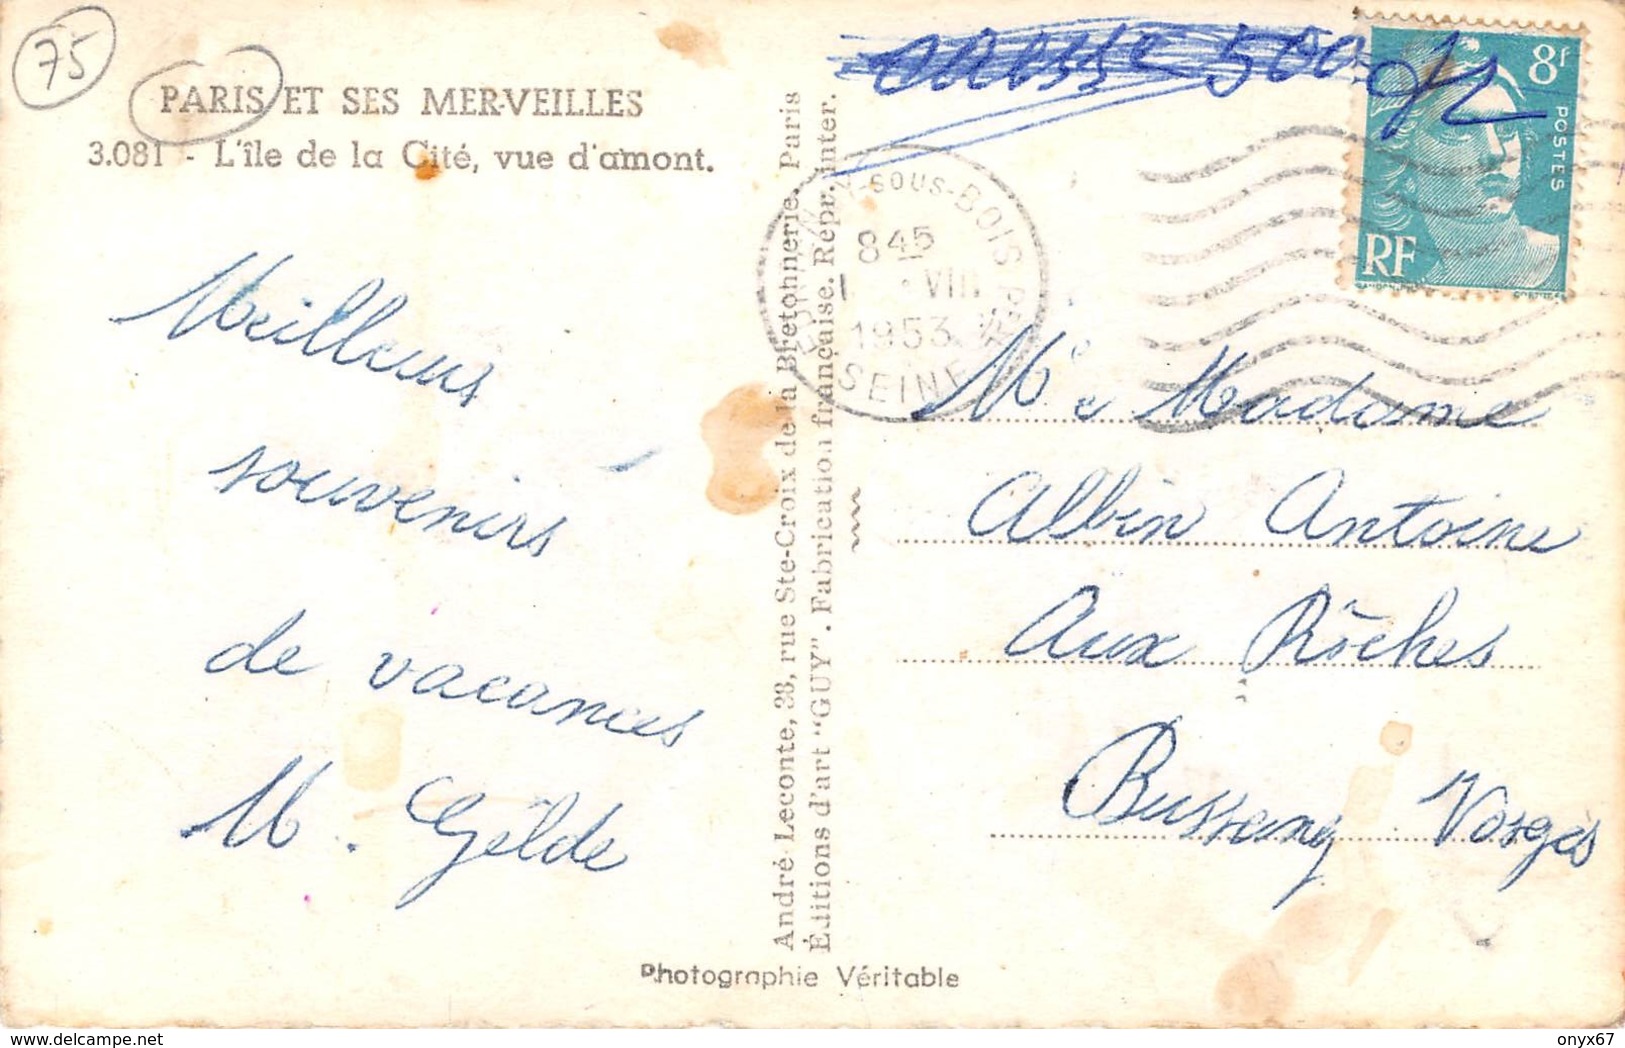 75
PARIS ET SES MERVEILLES
3.081 - L'île de la Cité, vue d'amont.
500
8f
POSTES
RF
-SOUS-BOIS
8 45
1 · VIII
1953
SEINE
Meilleurs
souvenirs
de vacances
M. Gëlde
André Leconte, 38, rue Ste-Croix de la Bretonnerie. Paris
Éditions d'art "GUY". Fabrication française. Repr. inter.
Mr e Madame
Albin Antoine
Aux Rôches
Bussang Vosges
Photographie Véritable
delcampe.net
onyx67